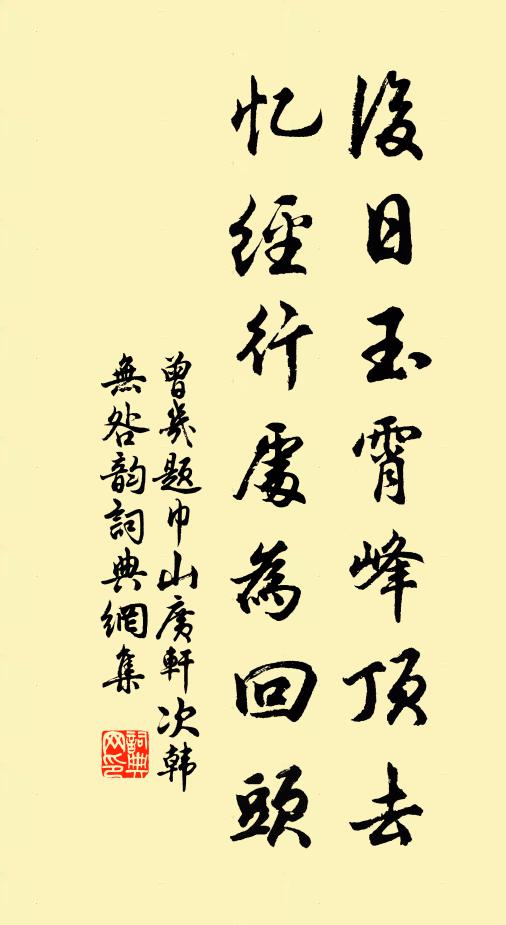 後日玉霄峰頂去
忆經行處為回頭
曾幾題巾山廣軒次韩
無咎韵詞典網集
詞典網印